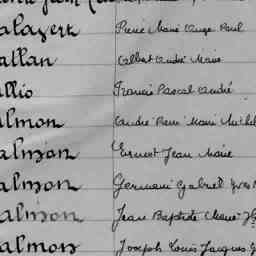 René Marie Ange Paul
allan Albert André Marie
allio Francis Pascal André
almon André René Marie Michel
almon Ernest Jean Marie
almon Germain Gabriel Yves
almon Jean Baptiste Marie
almon Joseph Louis Jacques